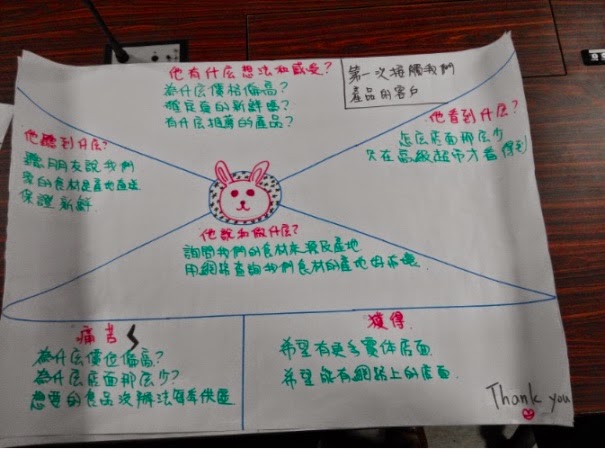 他有什么想法和感受?
為什么價格偏高?
確定真的新鮮嗎?
有什么推薦的產品?
第一次接觸我們
產品的客戶
他看到什么?
怎么店面那么少
只在高級超市才看得到
他聽到什么?
聽朋友說我們
家的食材是產地直送
保證新鮮
他說和做什么?
詢問我們的食材來源及產地
用網路查詢我們食材的產地
痛苦
為什么價位偏高?
為什么店面那么少?
想要的食品沒辦法每季供應
獲得
希望有更多實体店面
希望能有網路上的店面
Thank you